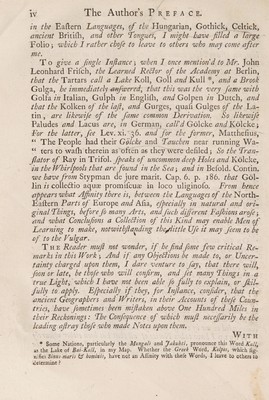 iv The Author's PREFACE.
in the Eastern Languages, of the Hungarian, Gothick, Celtick,
ancient British, and other Tongues, I might have filled a large
Folio; which I rather chose to leave to others who may come after
me.
To give a single Instance; when I once mention'd to Mr. John
Leonhard Frisch, the Learned Rector of the Academy at Berlin,
that the Tartars call a Lake Koll, Goll and Kull *, and a Brook
Gulga, he immediately answered, that this was the very same with
Golfa in Italian, Gulph in English, and Golpen in Dutch, and
that the Kolken of the last, and Gurges, quasi Gulges of the La-
tin, are likewise of the same common Derivation. So likewise
Paludes and Lacus are, in German, call'd Golcke and Kölcke;
For the latter, see Lev. xi. 36. and for the former, Matthesius,
" The People had their Golcke and Tauchen near running Wa-
" ters to wash therein as often as they were defiled; So the Tran-
slator of Ray in Trifol. speaks of uncommon deep Holes and Kölcke,
in the Whirlpools that are found in the Sea; and in Besold. Contin.
we have from Strypman de jure marit. Cap. 6. p. 186. that Göl-
lin is collectio aquæ promiscuæ in loco uliginoso. From hence
appears what Affinity there is, between the Languages of the North-
Eastern Parts of Europe and Asia, especially in natural and ori-
ginal Things, before so many Arts, and such different Fashions arose;
and what Conclusions a Collection of this Kind may enable Men of
Learning to make, notwithstanding the little Use it may seem to be
of to the Vulgar.
The Reader must not wonder, if he find some few critical Re-
marks in this Work; And if any Objections be made to, or Uncer-
tainty charged upon them, I dare venture to say, that there will,
soon or late, be those who will confirm, and set many Things in a
true Light, which I have not been able so fully to explain, or skil-
fully to apply. Especially if they, for Instance, consider, that the
ancient Geographers and Writers, in their Accounts of these Coun-
tries, have sometimes been mistaken above One Hundred Miles in
their Reckonings: The Consequence of which must necessarily be the
leading astray those who made Notes upon them.
WITH
* Some Nations, particularly the Mongals and Jakuhti, pronounce this Word Kull,
as the Lake of Bai-Kull, in my Map. Whether the Greek Word, Kolpos, which sig-
nifies Sinus maris & hominis, have not an Affinity with these Words, I leave to others to
determine?